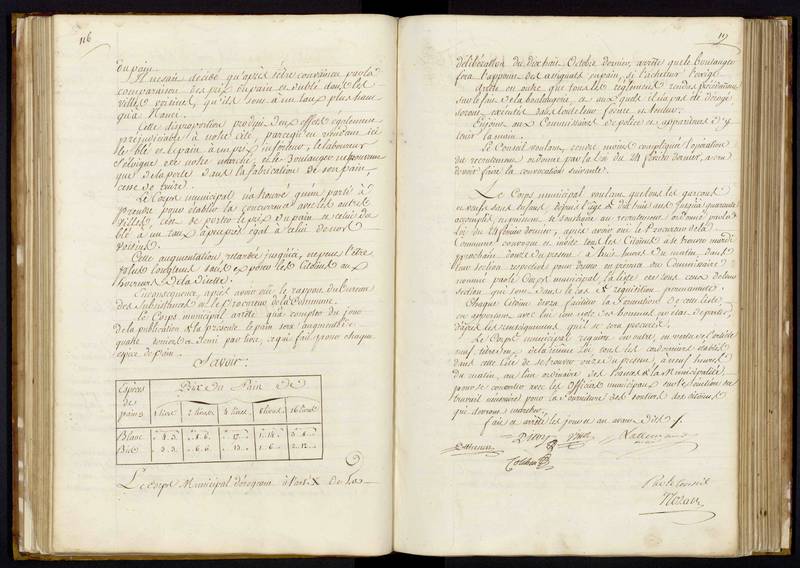 116
Du pain.
Il nesait décidé qu'après s'être convaincu par la
comparaison des prix du pain et du blé dans les
villes voisines, qu'ils sont à un taux plus haut
qu'à Nancy.
Cette disproportion produit deux effets également
préjudiciable à notre cité, parcequ'en vendant ici
le blé et le pain à un prix inférieur, le laboureur
s'éloigne de notre marché, et le Boulanger ne
que de la perte dans la fabrication de son pain,
cesse de cuire.
Le Corps municipal n'a trouvé qu'un parti à
prendre pour établir la concurrence avec les autres
villes, c'est de porter le prix du pain et celui du
blé à un taux à peu près égal à celui de nos
voisins.
Cette augmentation retardée jusqu'ici, ne peut l'être
plus longtems sans exposer les Citoiens aux
horreurs de la disette.
En conséquence, après avoir oüi, le rapport du Bureau
des Subsistances et le Procureur de la Commune.
Le Corps municipal arrête qu'à compter du jour
de la publication de la présente le pain sera augmenté de
quatre deniers et demi par livre, ce qui fait pour chaque
espece de pain.
Savoir:
Espèces de pains
Prix du Pain de
1 livre 2 livres 4 livres 8 livres 16 livres
Blanc 4. 3. 8. 6. 17. 1. 14. 3. 8.
Bis 3. 3. 6. 6. 13. 1. 6. 2. 12.
Le Corps Municipal dérogeant à l'art. X de la
117
délibération du dix huit Octobre dernier, arrête que le boulanger
fera l'appoint des assignats en pain, si l'acheteur l'exige.
Arrête en outre que tous les règlemens rendus précédemment
sur le fait de la boulangerie, et aux quels il n'a pas été dérogé
seront exécutés dans toute leur forme et teneur.
Enjoint aux Commissaires de police et appariteurs d'y
tenir la main.
Le Conseil voulant rendre moins compliquée l'opération
du recrutement ordonné par la loi du 24 février dernier, a cru
devoir faire la convocation suivante.
Le Corps municipal voulant que tous les garçons
et veufs sans enfans, depuis l'âge de dix huit ans jusqu'à quarante
accomplis, ne puissent se soustraire au recrutement ordonné par la
loi du 24 février dernier, après avoir oüi le Procureur de la
Commune convoque et invite tous les Citoiens à se trouver mardi
prochain douze du present, à huit heures du matin, dans
leur section respective pour donner en présence du Commissaire
nommé par le Corps municipal la liste de tous ceux de leur
section qui sont dans le cas de réquisition permanente.
Chaque Citoien devra faciliter la formation de cette liste
en apportant avec lui une note des hommes en état de partir,
d'après les renseignemens qu'il se sera procurés.
Le Corps municipal requiert en outre, en vertu de l'article
neuf, titre de la même loi, tous les cordonniers établis
dans cette cité de se trouver onze du présent, à neuf heures
du matin, au lieu ordinaire des séances de la Municipalité,
pour se concerter avec les Officiers municipaux sur le
travail nécessaire pour la fourniture des souliers des citoiens
qui devront marcher.
Fait et arrêté les jour et an avant dits.
Lallemand
Par le Conseil